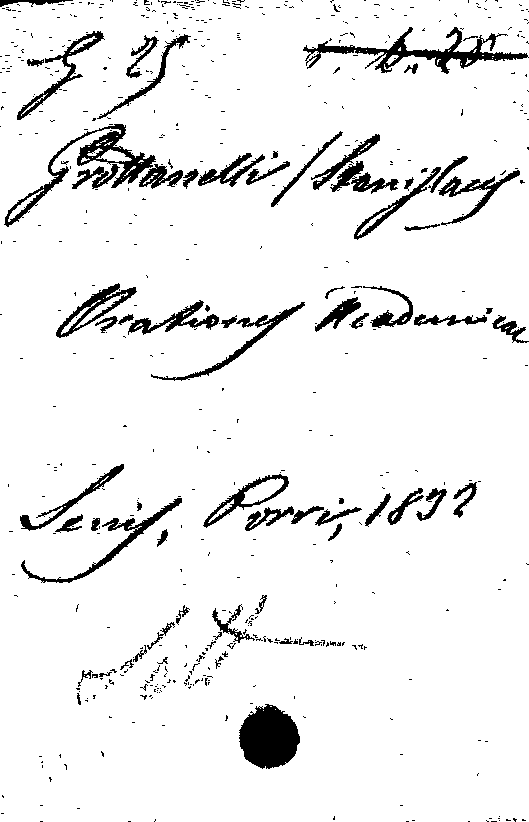 G. 25
Grottanelli / Stanislaus
Orationes Academicae
Senis, Porri, 1832